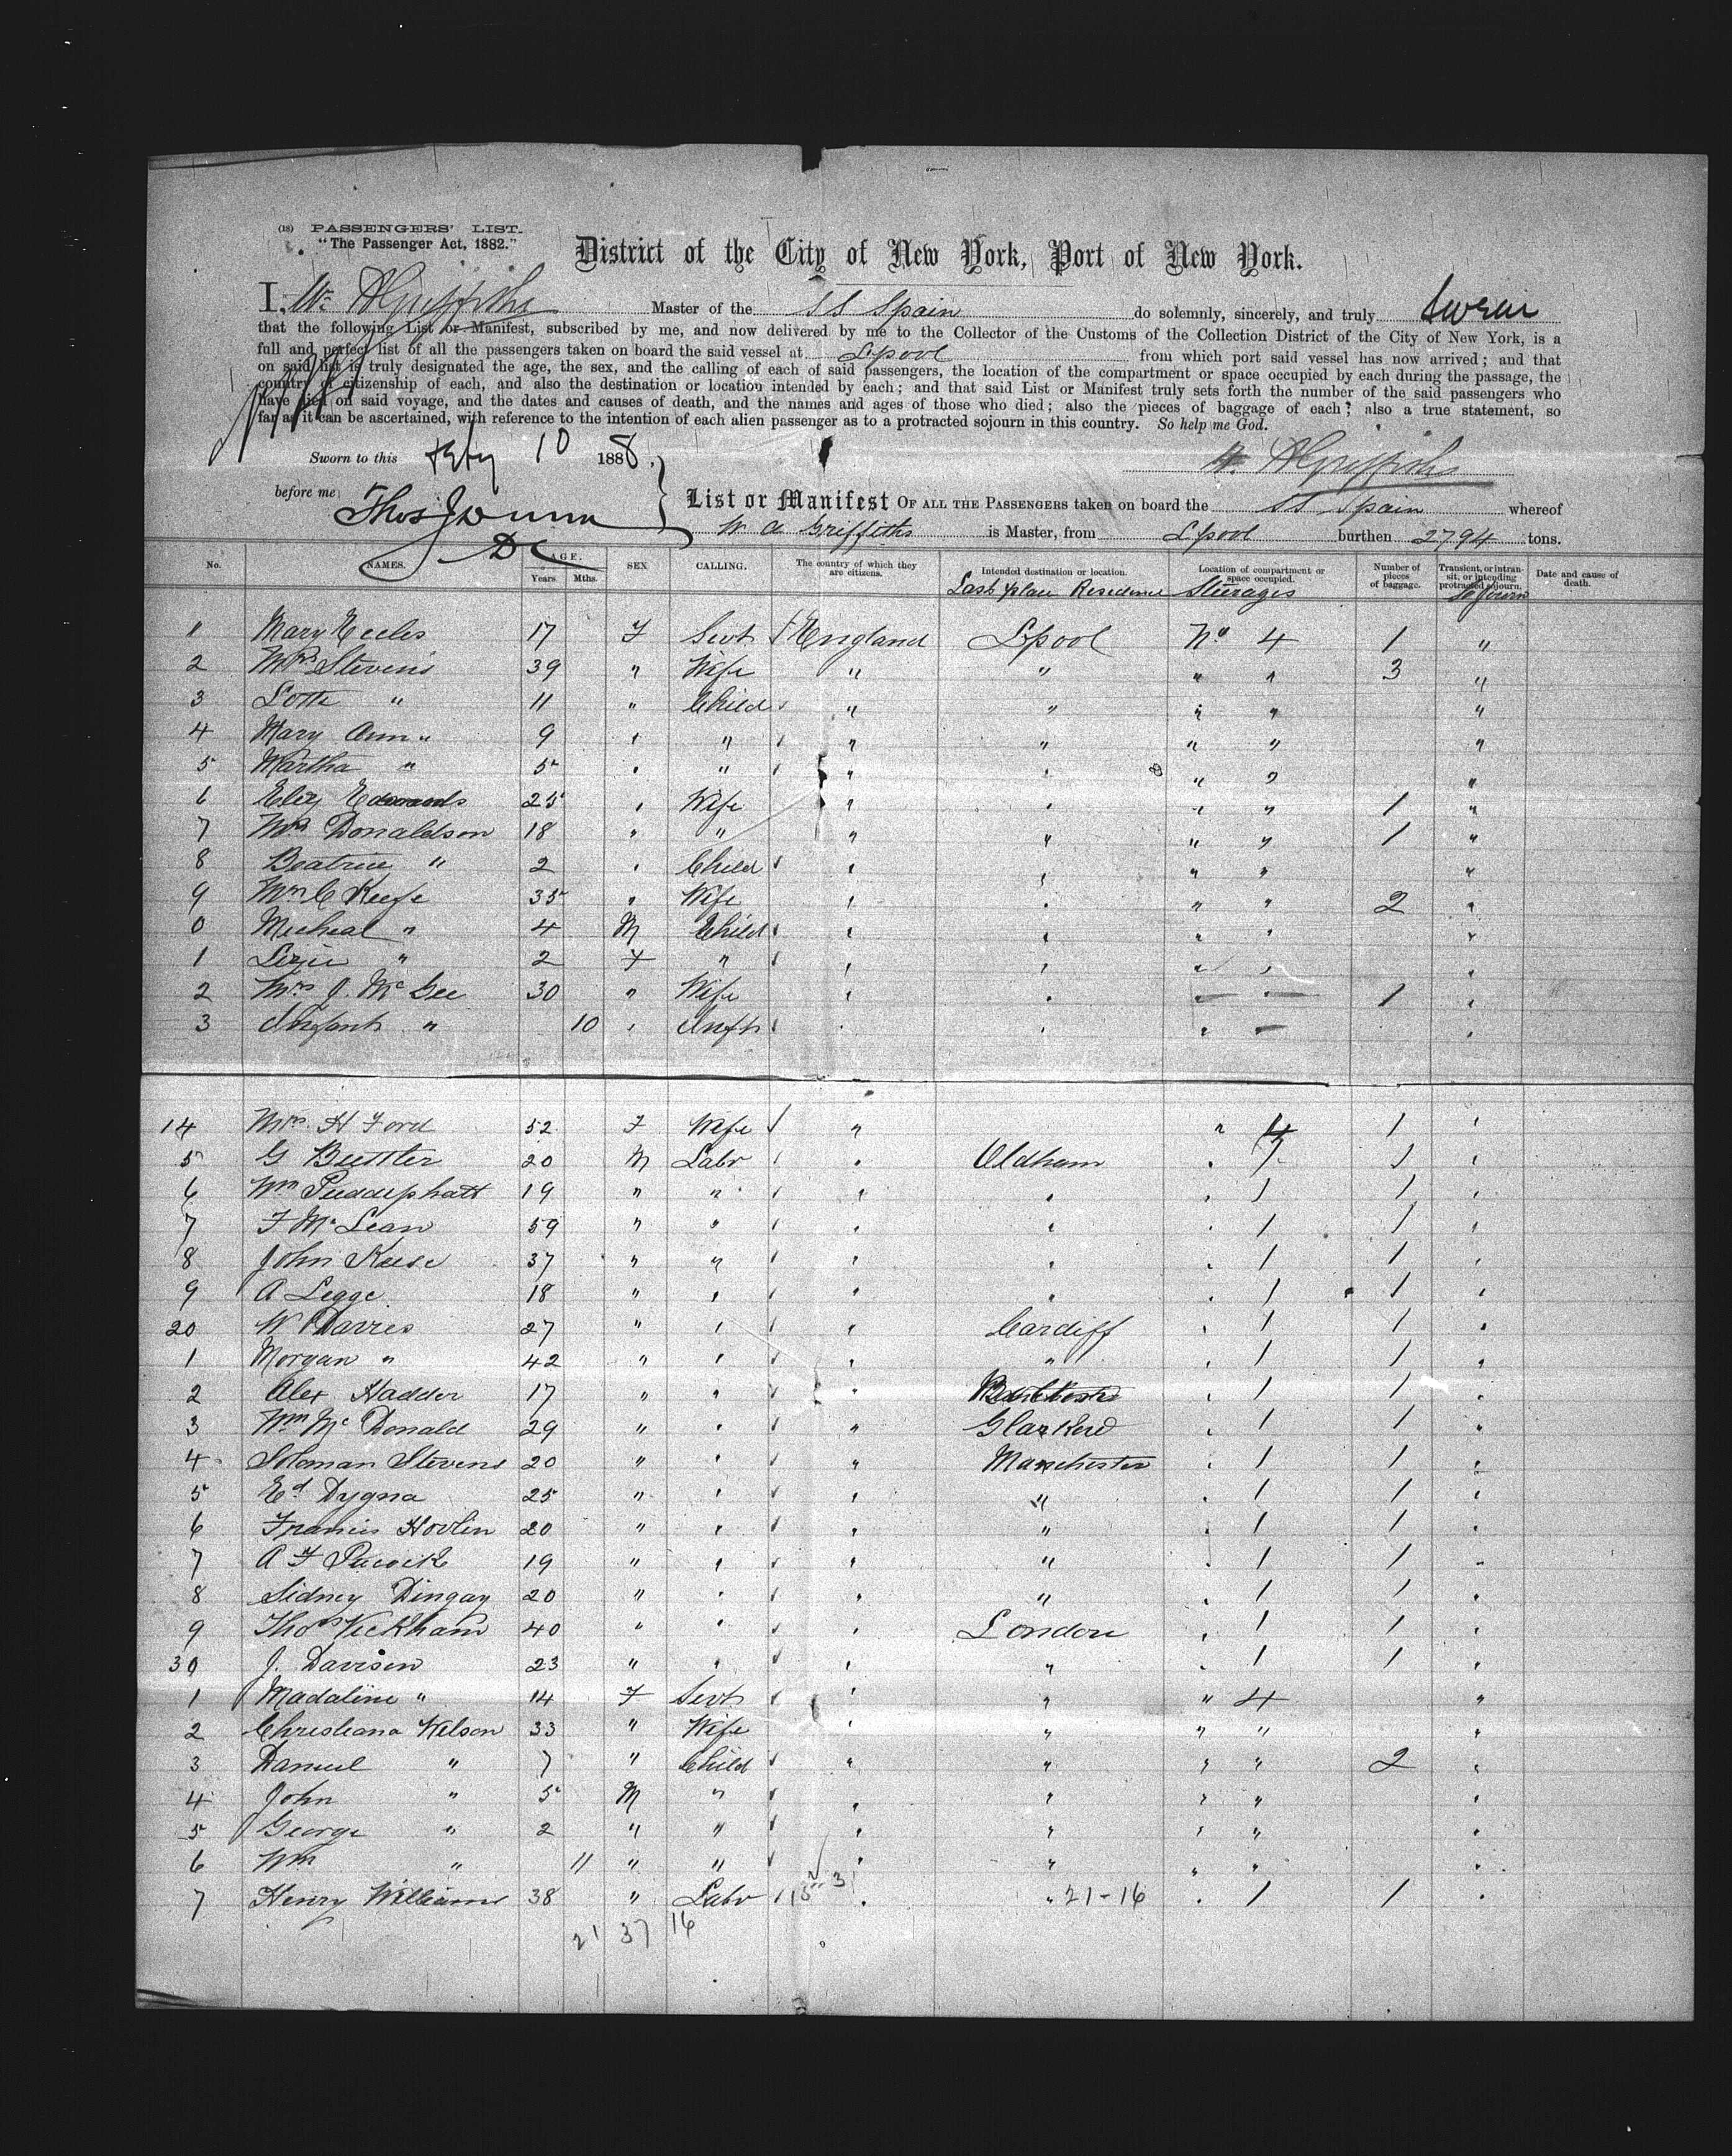 (18) PASSENGERS' LIST.
"The Passenger Act, 1882."
District of the City of New York, Port of New York.
I, Wm A Griffiths Master of the SS Spain do solemnly, sincerely, and truly swear
that the following List or Manifest, subscribed by me, and now delivered by me to the Collector of the Customs of the Collection District of the City of New York, is a
full and perfect list of all the passengers taken on board the said vessel at L'pool from which port said vessel has now arrived; and that
on said list is truly designated the age, the sex, and the calling of each of said passengers, the location of the compartment or space occupied by each during the passage, the
country of citizenship of each, and also the destination or location intended by each; and that said List or Manifest truly sets forth the number of the said passengers who
have died on said voyage, and the dates and causes of death, and the names and ages of those who died; also the pieces of baggage of each; also a true statement, so
far as it can be ascertained, with reference to the intention of each alien passenger as to a protracted sojourn in this country. So help me God.
Sworn to this Feby 10 1888.
W. A Griffiths
before me Thos J Dunn
DC
List or Manifest OF ALL THE PASSENGERS taken on board the SS Spain whereof
W A Griffiths is Master, from L'pool burthen 2794 tons.
No. NAMES. AGE. Years. Mths. SEX CALLING. The country of which they are citizens. Intended destination or location. Location of compartment or space occupied. Number of pieces of baggage. Transient, or intransit, or intending protracted sojourn. Date and cause of death.
Last place Residence Steerages Sojourn
1 Mary Eccles 17 F Servt England L'pool No 4 1 "
2 Mrs Stevens 39 " Wife " " " " 3 "
3 Lotte " 11 " Child " " " " "
4 Mary Ann " 9 " " " " " " "
5 Martha " 5 " " " " " " "
6 Eliz Edwards 25 " Wife " " " " 1 "
7 Mrs Donaldson 18 " " " " " " 1 "
8 Beatrice " 2 " Child " " " " "
9 Mrs C Keefe 35 " Wife " " " " 2 "
0 Micheal " 4 M Child " " " " "
1 Lizzie " 2 F " " " " " "
2 Mrs J. McGee 30 " Wife " " " " 1 "
3 Infant " 10 " Inft " " " " "
14 Mrs H Ford 52 F Wife " " 4 1 "
5 G 20 M Labr " Oldham " 1 1 "
6 Wm Puddephatt 19 " " " " " 1 1 "
7 F McLean 59 " " " " " 1 1 "
8 John 37 " " " " " 1 1 "
9 A Legge 18 " " " " " 1 1 "
20 W Davies 27 " " " Cardiff " 1 1 "
1 Morgan " 42 " " " " " 1 1 "
2 Alex Hadder 17 " " " " 1 1 "
3 Wm McDonald 29 " " " " 1 1 "
4 Soloman Stevens 20 " " " Manchester " 1 1 "
5 Ed Dygna 25 " " " " " 1 1 "
6 Francis Hovlin 20 " " " " " 1 1 "
7 A F 19 " " " " " 1 1 "
8 Sidney Dingay 20 " " " " " 1 1 "
9 Thos Vickham 40 " " " London " 1 1 "
30 J. Davison 23 " " " " " 1 1 "
1 Madaline " 14 F Servt " " " 4 "
2 Christiana Wilson 33 " Wife " " " " "
3 Daniel " 7 " Child " " " " 2 "
4 John " 5 M " " " " " "
5 George " 2 " " " " " " "
6 Wm " 11 " " " " " " "
7 Henry Williams 38 " Labr " " 21-16 " 1 1 "
21 37 16